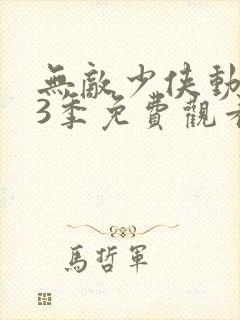 無敵少俠動
3季免費觀看
馬哲軍